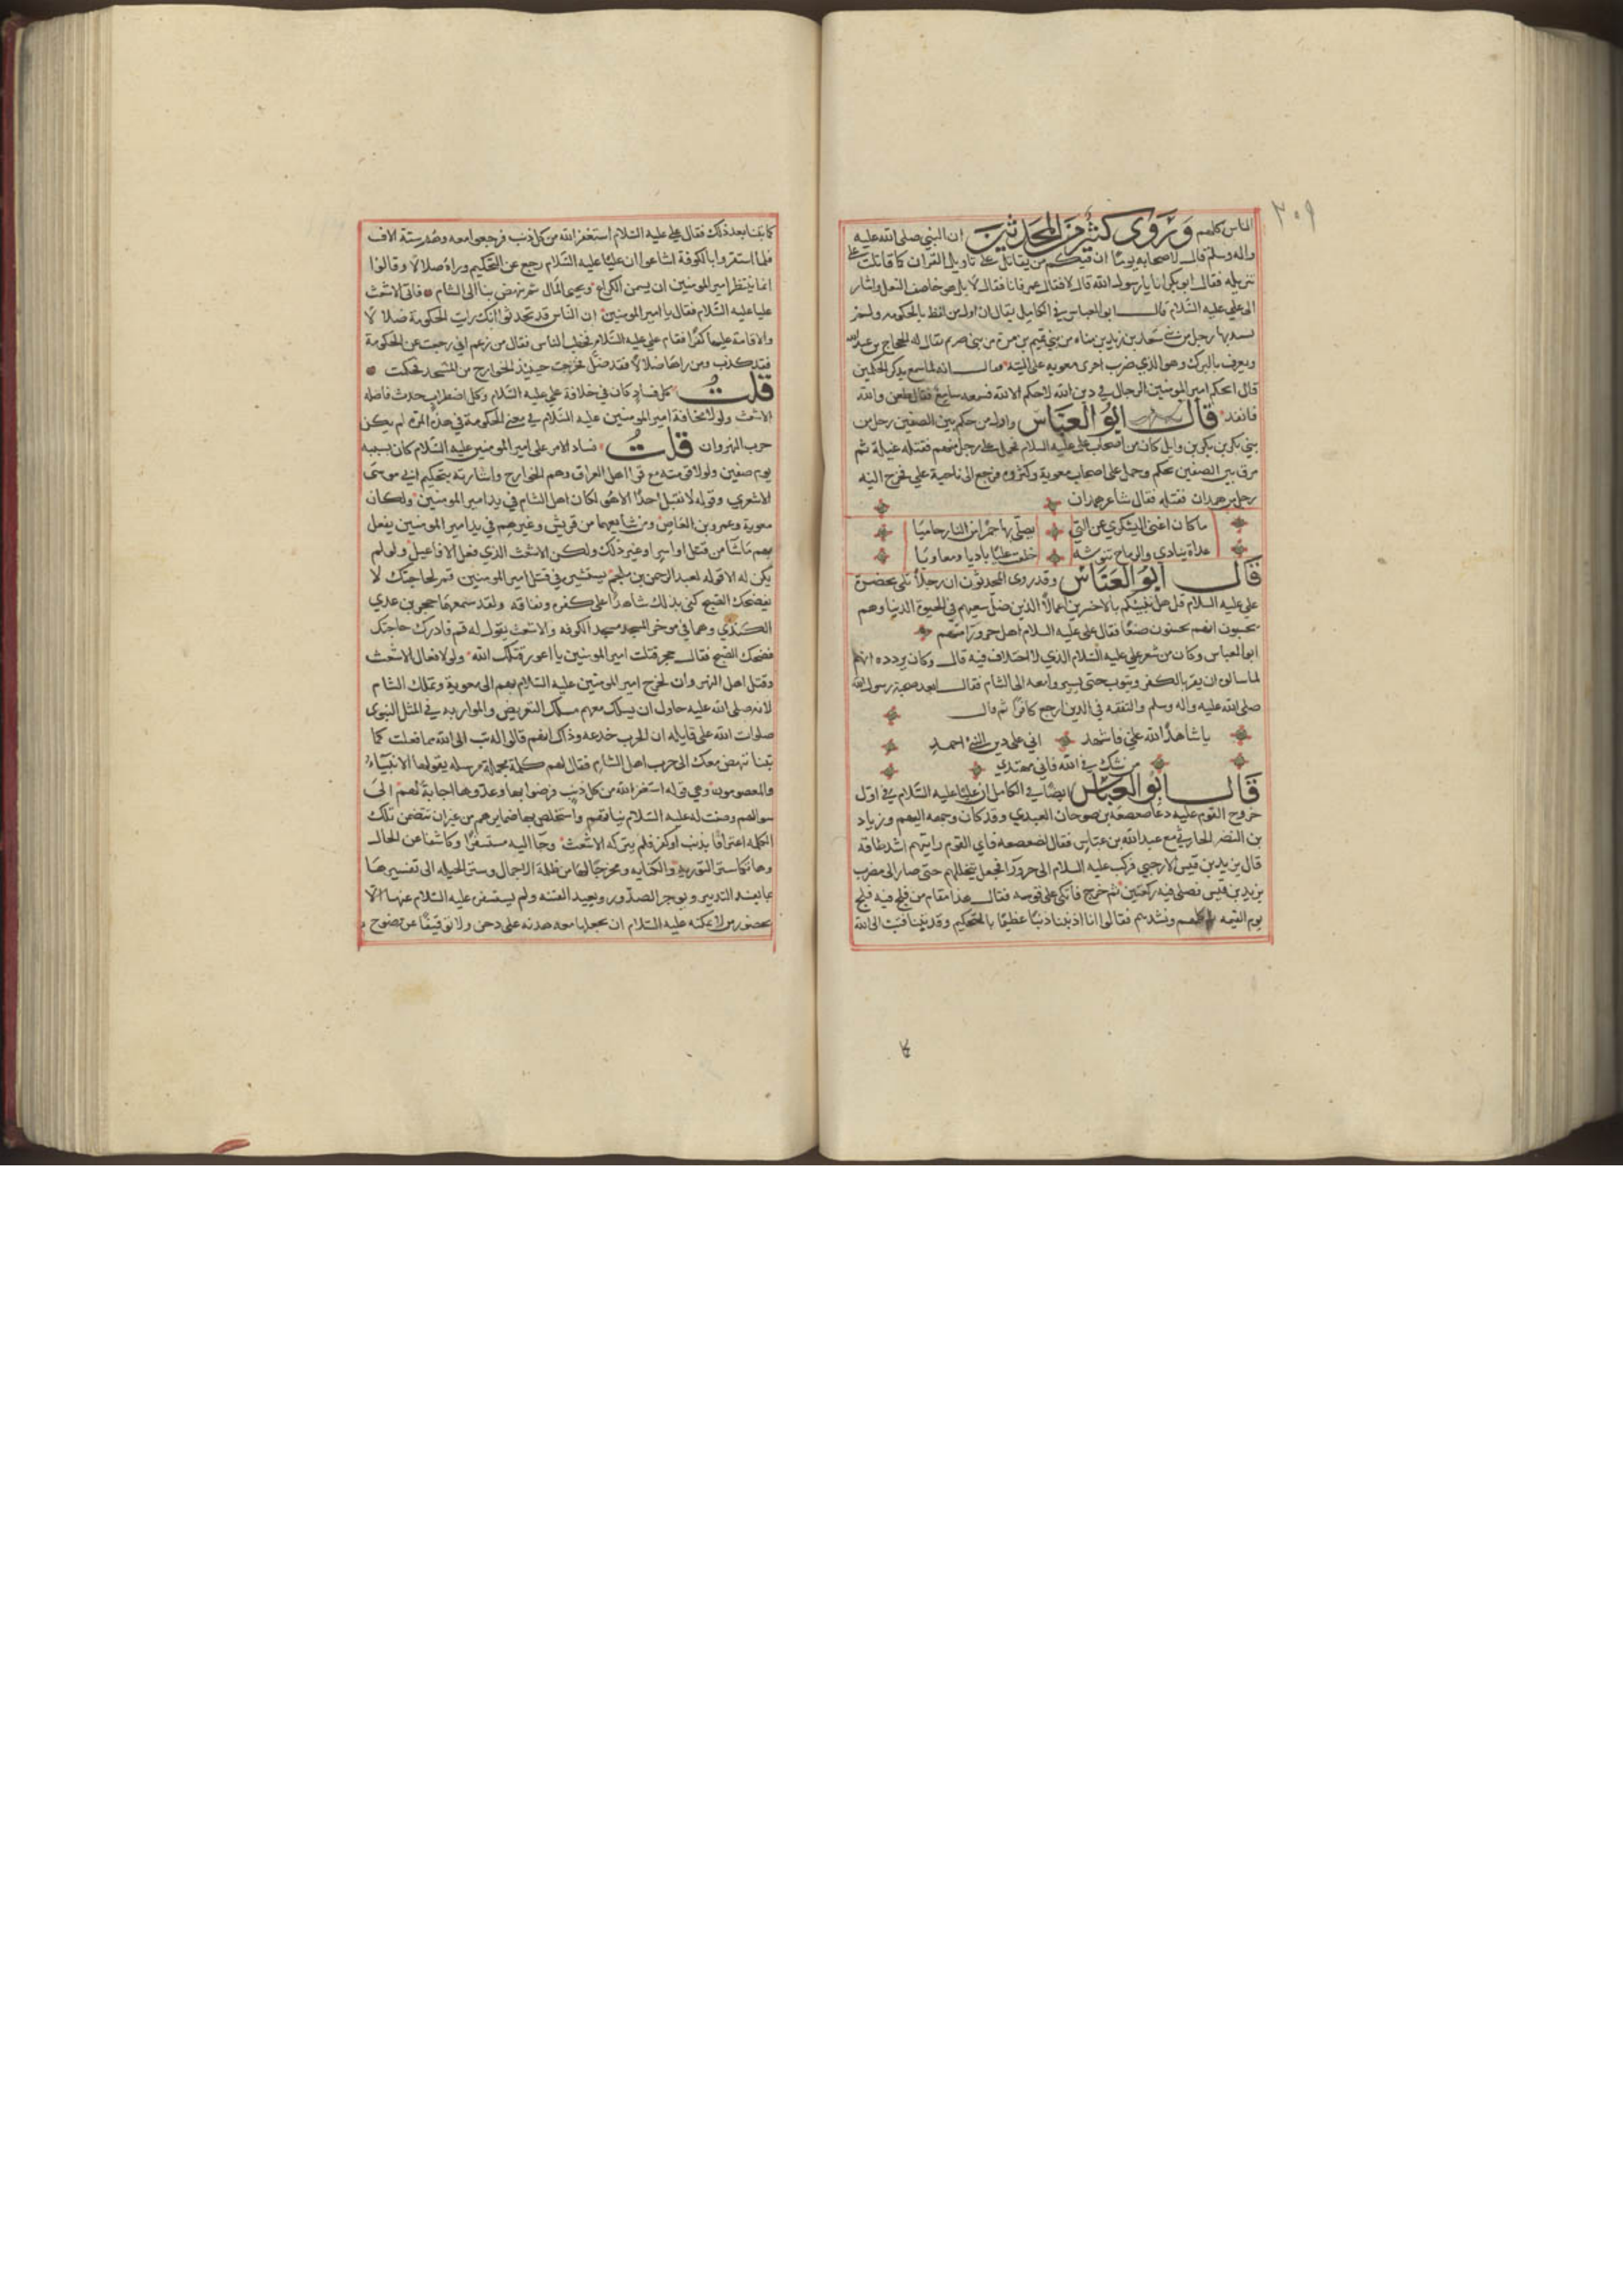 ٣٠٩
الناس كلهم وروى كثير من المحدثين ان النبي صلى الله عليه
واله وسلم قال لاصحابه يوما ان فيكم من يقاتل على تاويل القران كما قاتلت على
تنزيله فقال ابو بكر انا يا رسول الله قال لا فقال عمر فانا فقال لا بل هو خاصف النعل واشار
الى علي عليه السلام قال ابو العباس في الكامل يقال ان اول من لفظ بالحكومة ولم
يسد بها رجل من بني سعد بن زيد بن مناه من بني تميم بن مرة من بني صريم يقال له الحجاج بن عبد الله
ويعرف بالبرك وهو الذي ضرب اخرى معوية على اليته فقال انه لما سمع بذكر الحكمين
قال ايحكم امير المومنين الرجال في دين الله لا حكم الا لله فسمعه سامع فقال طعن والله
فانفذ قال ابو العباس واول من حكم بين الصفين رجل من
بني يشكر بن بكر بن وايل كان من اصحاب علي عليه السلام فحمل على رجل منهم فقتله غيلة ثم
مرق بين الصفين يحكم وحمل على اصحاب معوية وكثروه فرجع الى ناحية علي فخرج اليه
رجل من همدان فقتله فقال شاعر همدان
ما كان اغنى اليشكري عن التي يصلى بها جمرا من النار حاميا
غداة ينادي والرماح تنوشه خلعت عليا باديا ومعاويا
قال ابو العباس وقد روى المحدثون ان رجلا تلى بحضرة
علي عليه السلام قل هل ننبيئكم بالاخسرين اعمالا الذين ضل سعيهم في الحيوة الدنيا وهم
يحسبون انهم يحسنون صنعا فقال علي عليه السلام اهل حرورا منهم
ابو العباس وكان من شعر علي عليه السلام الذي لا اختلاف فيه قال وكان يردده انهم
لما سالوه ان يقر بالكفر ويتوب حتى يسيروا معه الى الشام فقال ابعد صحبة رسول الله
صلى الله عليه واله وسلم والتفقه في الدين ارجع كافرا ثم قال
يا شاهد الله علي فاشهد اني على دين النبي احمد
من شك في الله فاني مهتدي
قال ابو العباس ايضا في الكامل ان عليا عليه السلام في اول
خروج القوم عليه دعا صعصعة بن صوحان العبدي وقد كان وجهه اليهم وزياد
بن النضر الحارثي مع عبد الله بن عباس فقال لصعصعه فاي القوم رايتهم اشد طاقة
قال بن يزيد بن قيس الارحبي فركب عليه السلام الى حرورآ فجعل يتخللهم حتى صار الى مضرب
يزيد بن قيس فصلى فيه ركعتين ثم خرج فاتكى على قوسه فقال هذا مقام من فلج فيه فلج
يوم القيمه كلمهم ونشدهم فقالوا انا اذنبنا ذنبا عظيما بالتحكيم وقد تبنا فتب الى الله
كما تبنا بعد ذلك فقال علي عليه السلام استغفر الله من كل ذنب فرجعوا معه وهم ستة الاف
فلما استقروا بالكوفة اشاعوا ان عليا عليه السلام رجع عن التحكيم وراه ضلالا وقالوا
انما ينتظر امير المومنين ان يسمن الكراع ويجى المال ثم ينهض بنا الى الشام فاتى الاشعث
عليا عليه السلام فقال يا امير المومنين ان الناس قد تحدثوا انك رايت الحكومة ضلالا
والاقامة عليها كفرا فقام علي عليه السلام يخطب الناس فقال من زعم اني رجعت عن الحكومة
فقد كذب ومن راها ضلالا فقد ضل فخرجت حينيذ الخوارج من المسجد فحكمت
قلت كل فساد كان في خلافة علي عليه السلام وكل اضطراب حدث فاصله
الاشعث ولولا مخافة امير المومنين عليه السلام في معنى الحكومة في هذه المرة لم يكن
حرب النهروان قلت فساد الامر على امير المومنين عليه السلام كان بسببه
يوم صفين ولولا قومته مع قرا اهل العراق وهم الخوارج واشارته بتحكيم ابي موسى
الاشعري وقوله لا نقبل احدا الا هو لكان اهل الشام في يد امير المومنين ولكان
معوية وعمرو بن العاص ومن شايعهما من قريش وغيرهم في يد امير المومنين يفعل
بهم ما شآ من قتل او اسر او غير ذلك ولكن الاشعث الذي فعل الافاعيل ولو لم
يكن له الا قوله لعبد الرحمن بن ملجم يستشيره في قتل امير المومنين قم لحاجتك لا
يفضحك الصبح كفى بذلك شاهدا على كفره ونفاقه ولقد سمعها حجر بن عدي
الكندي وهما في موخر المسجد مسجد الكوفه والاشعث يقول له قم فادرك حاجتك
فضحك الصبح فقال حجر قتلت امير المومنين يا اعور قتلك الله ولولا فعال الاشعث
وقتل اهل النهروان لخرج امير المومنين عليه السلام بهم الى معوية وتملك الشام
لانه صلى الله عليه حاول ان يسلك معهم مسلك التعريض والمواربه في المثل النبوى
صلوات الله على قايله ان الحرب خدعه وذاك انهم قالوا له تب الى الله مما فعلت كما
تبنا ننهض معك الى حرب اهل الشام فقال لهم كلمة مجملة مرسله يقولها الانبيآء
والمعصومون وهي قوله استغفر الله من كل ذنب فرضوا بها وعدوها اجابة لهم الى
سوالهم وصفت له عليه السلام نياتهم واستخلص بها ضمايرهم من غير ان تتضمن تلك
الكلمه اعترافا بذنب او كفر فلم يتركه الاشعث وجآ اليه مستفسرا وكاشفا عن الحال
وهاتكا ستر التورية والكنايه ومخرجا لها من ظلمة الاجمال وستر الحيله الى تفسيرها
بما يفسد التدبير ويوغر الصدور ويعيد الفتنه ولم يستفسر عليه السلام عنها الا
بحضور من لا يمكنه عليه السلام ان يجعلها معه هدنه على دخن ولا توقيفا عن صبوح